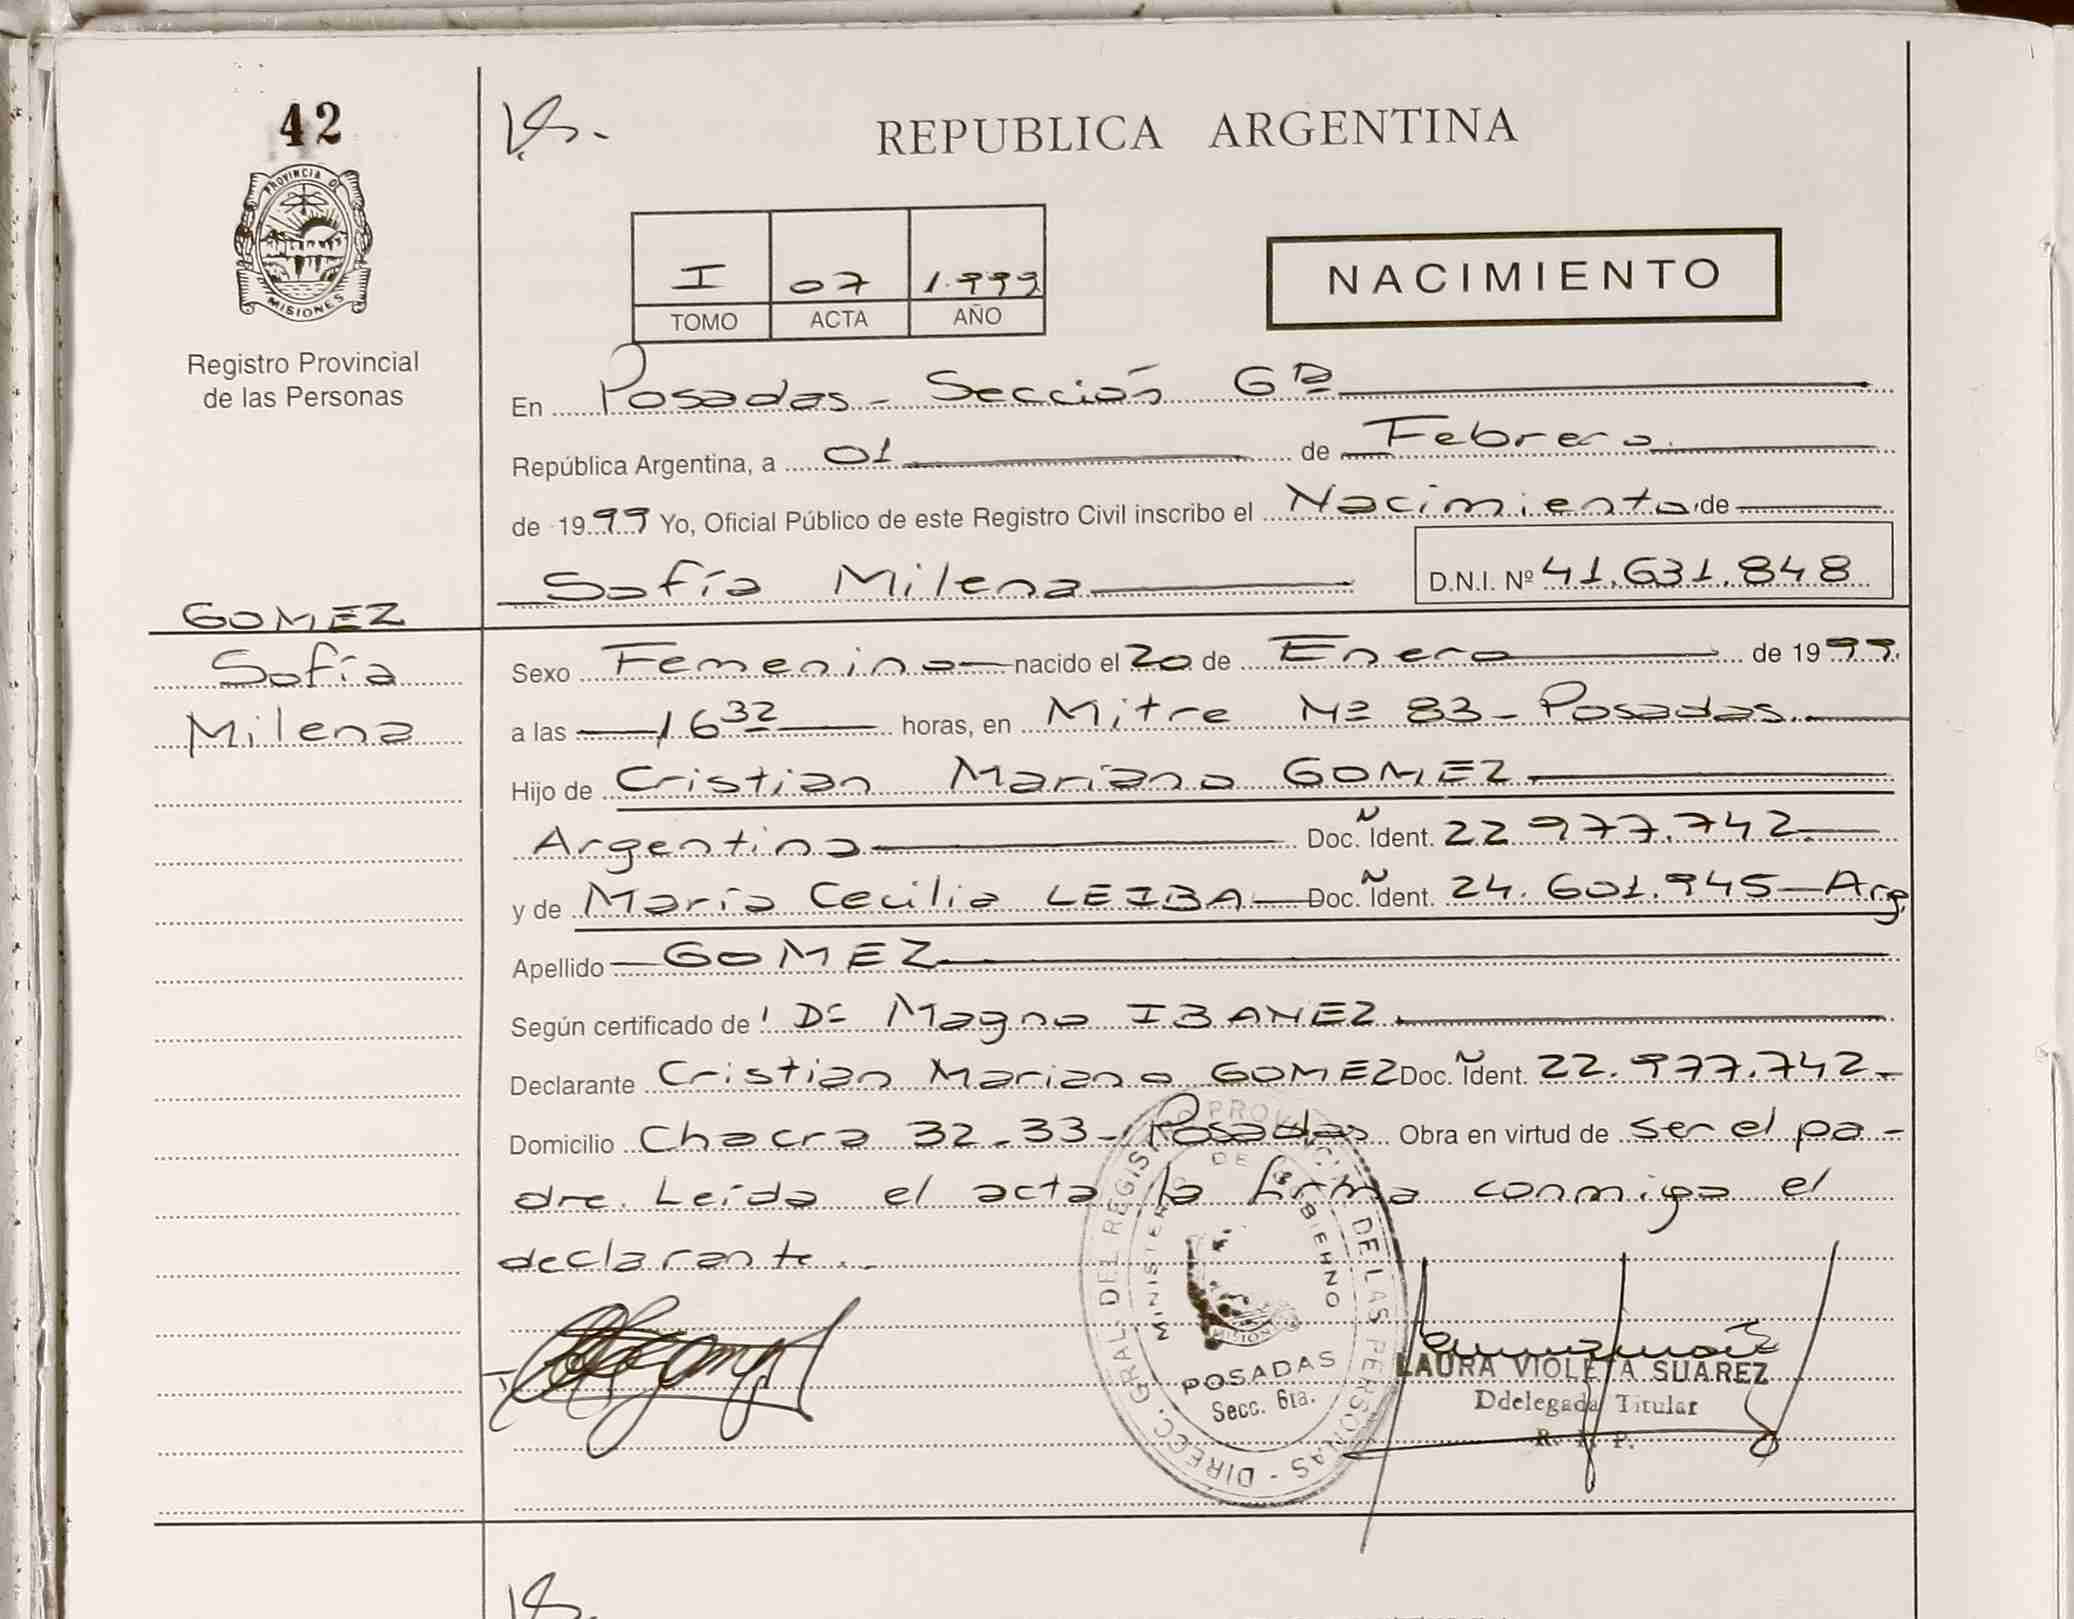 42
PROVINCIA DE
MISIONES
Registro Provincial
de las Personas
REPUBLICA ARGENTINA
I 07 1.999
TOMO ACTA AÑO
NACIMIENTO
En Posadas - Sección 6ª
República Argentina, a 01 de Febrero
de 1999 Yo, Oficial Público de este Registro Civil inscribo el Nacimiento de
Sofía Milena D.N.I. Nº 41.631.848
GOMEZ
Sofía
Milena
Sexo Femenino nacido el 20 de Enero de 1999.
a las 16 32 horas, en Mitre Nº 83 - Posadas.
Hijo de Cristian Mariano GOMEZ
Argentino Doc. Ident. 22.977.742.
y de María Cecilia LEIBA Doc. Ident. 24.601.945 - Arg.
Apellido GOMEZ
Según certificado de Dr Magno IBAÑEZ
Declarante Cristian Mariano GOMEZ Doc. Ident. 22.977.742 -
Domicilio Chacra 32-33 - Posadas Obra en virtud de ser el pa-
dre. Leída el acta la firma conmigo el
declarante. -
DIRECC. GRAL. DEL REGISTRO PROVINCIAL DE LAS PERSONAS -
MINISTERIO DE GOBIERNO
MISIONES
POSADAS
Secc. 6ta.
LAURA VIOLETA SUAREZ
Ddelegada Titular
R. P.